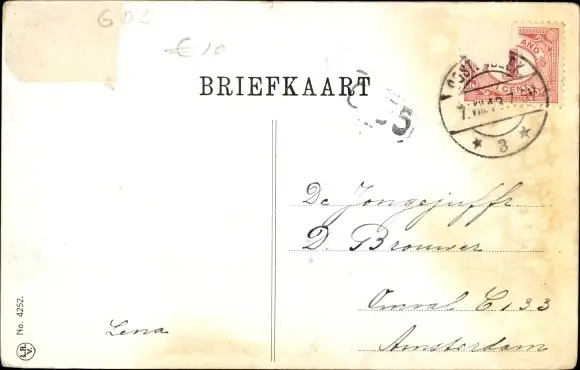 GDL
€10
BRIEFKAART
AND
1
CENT
7.VIII.13.7-8V
* 3 *
5
De Jongejuffr.
D. Brouwer
Omval C133
Amsterdam
Lena
No. 4252.
L.R.
V.